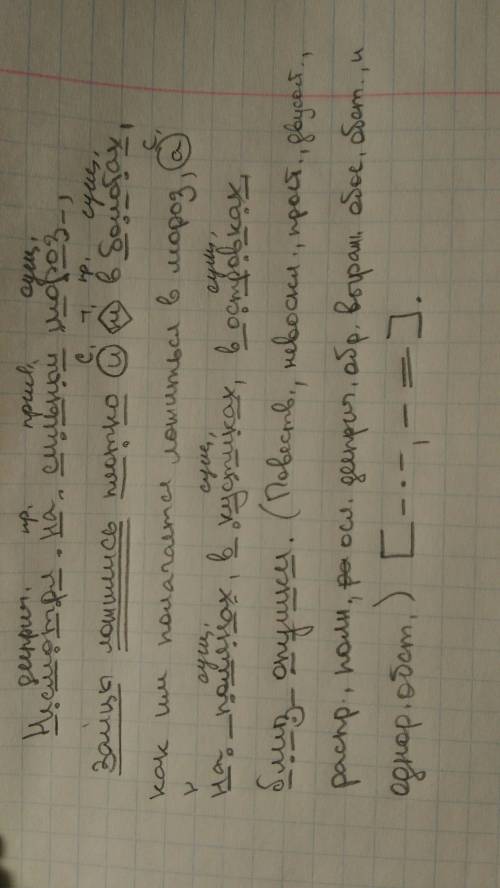 дееприч. пр. прил. сущ.
Несмотря на сильный мороз,
с. т. пр. сущ.
Зайцы ложились плотно и не в болотах,
как им полагается ложиться в мороз, а
сущ. сущ. сущ.
на полянах, в кустиках, в островках,
близ опушки. (Повеств., невоскл., прост., двусост.,
распр., полн., осл. дееприч. обр. выраж. обос. обст., и
однор. обст.) [-.-., - =].